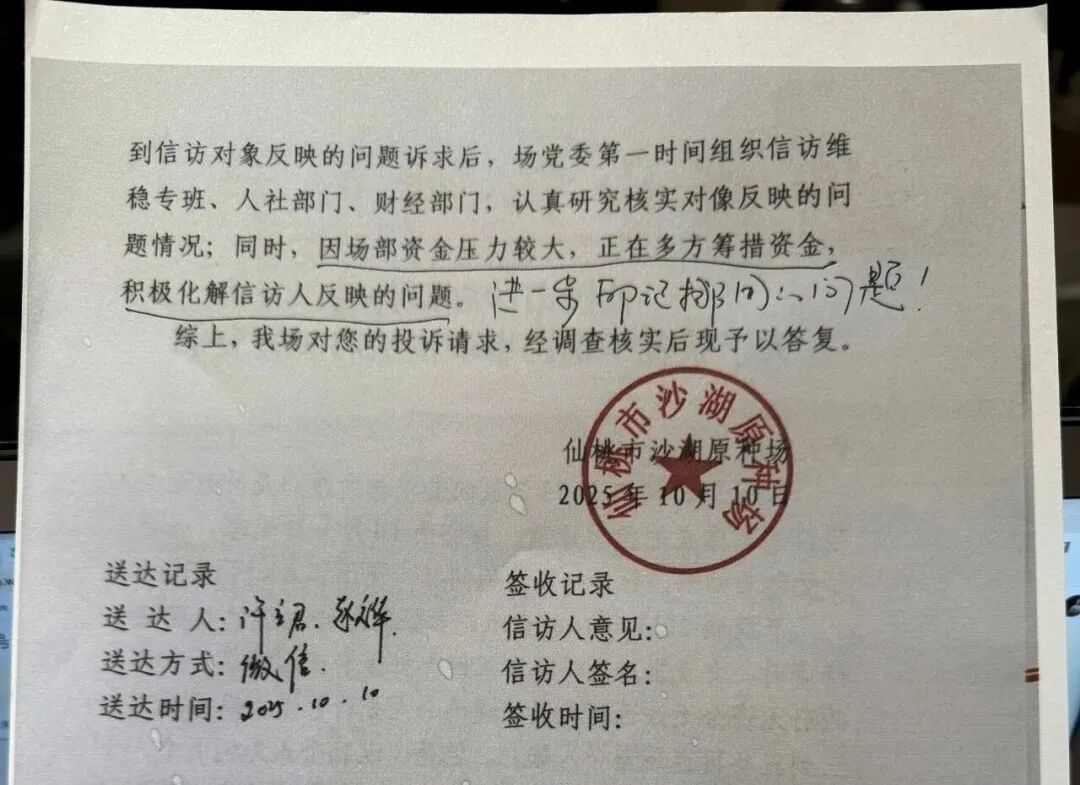 到信访对象反映的问题诉求后，场党委第一时间组织信访维
稳专班、人社部门、财经部门，认真研究核实对像反映的问
题情况；同时，因场部资金压力较大，正在多方筹措资金，
积极化解信访人反映的问题。进一步印证挪用的问题！
综上，我场对您的投诉请求，经调查核实后现予以答复。
仙桃市沙湖原种场
仙桃市沙湖原种场
2025年10月10日
送达记录
送 达 人：许立君.
送达方式：微信.
送达时间：2025.10.10
签收记录
信访人意见：
信访人签名：
签收时间：